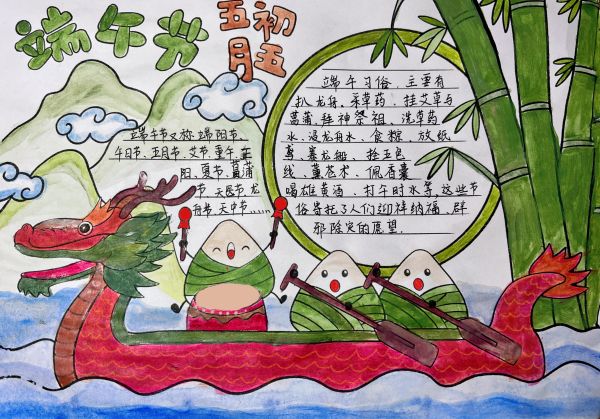 端午节
初五
五月
端午节又称端阳节、
午日节、五月节、艾节、重午、
阳、夏节、菖蒲
节、天医节、龙
舟节、天中节……
端午习俗,主要有
扒龙舟、采草药、挂艾草与
菖蒲、拜神祭祖、洗草药
水、浸龙舟水、食粽、放纸
鸢、赛龙船、拴五色
线、薰苍术、佩香囊
喝雄黄酒、打午时水等,这些节
俗寄托了人们迎祥纳福、辟
邪除灾的愿望